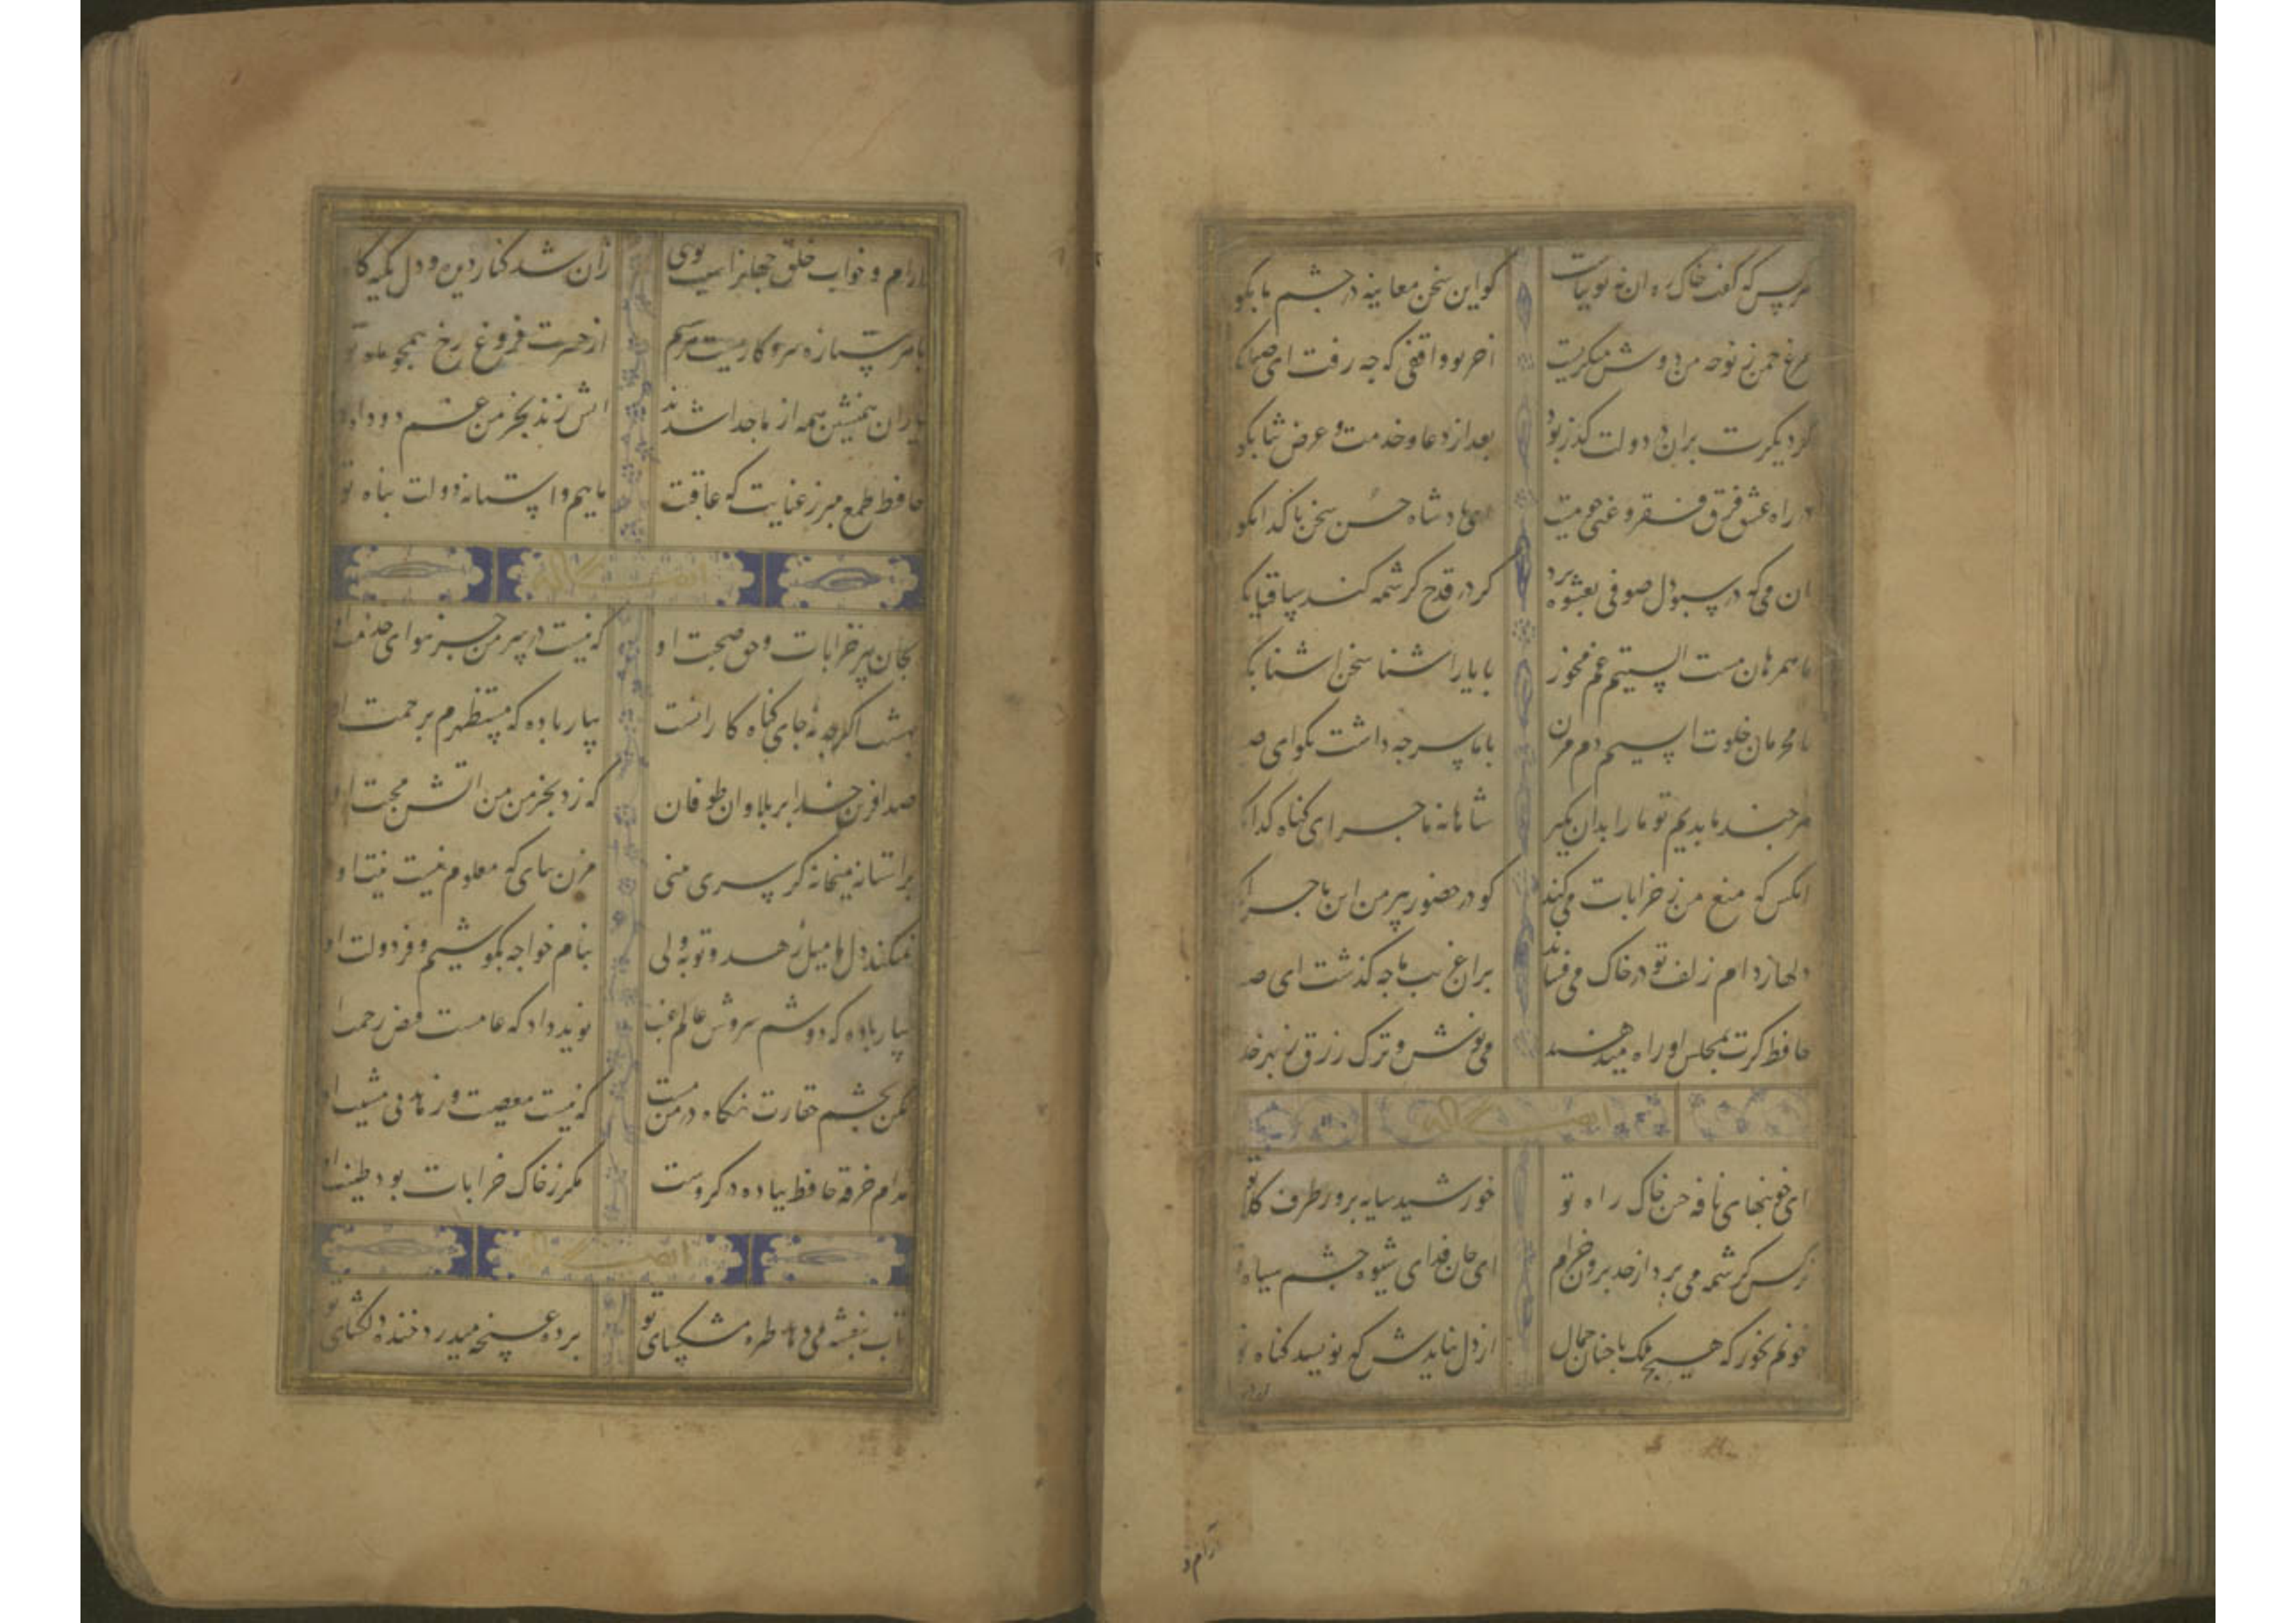 هرکس که گفت خاک ره او نه توتیاست کو این سخن معاینه در چشم ما بگو
مرغ چمن ز نوحه من دوش میکریست اخر تو واقفی که چه رفت ای صبا بکو
کر دیکرت بران در دولت کذر بود بعد از دعا و خدمت و عرض ثنا بکو
در راه عشق فرق فقر و غنی نیست ای پادشاه حسن سخن با کدا بکو
ان می که در سبو دل صوفی بعشوه برد کر در قدح کرشمه کند ساقیا بکو
ما سمرهان مست الستیم غم مخور با یار اشنا سخن اشنا بکو
ما محرمان خلوت انسیم دم مزن با ما سر چه داشت بکو ای
هر چند ما بدیم تو ما را بدان مکیر شاهانه ماجرای کناه کدا
انکس که منع من ز خرابات می کند کو در حضور پیر من این ماجرا
دلها ز دام زلف تو در خاک می فشاند بران غریب ما چه کذشت ای
حافظ کرت بمجلس او راه میدهند می نوش و ترک زرق ز بهر خدا
ایضا له
ای خونبهای نافه چین خاک راه تو خورشید سایه پرور طرف کلاه تو
نرکس کرشمه می برد از حد برون خرام ای جان فدای شیوه چشم سیاه تو
خونم بخور که هیچ ملک با چنان جمال از دل نایدش که نویسد کناه تو
آرام و
ارام و خواب خلق جهانرا سبب توی زان شد کنار دیده و دل تکیه کاه
با هر ستاره سر و کاریست هر شبم از حسرت فروغ رخ همچو ماه تو
یاران همنشین همه از ما جدا شدند اتش زند بخرمن غم دود اه
حافظ طمع مبر ز عنایت که عاقبت ماییم و استانه دولت پناه تو
ایضا له
بجان پیر خرابات و حق صحبت او که نیست در سر من جز هوای خدمت او
بهشت اکرچه نه جای کناه کارانست بیار باده که مستظهرم برحمت او
صد افرین خدا بر بلا و ان طوفان که زد بخرمن من اتش محبت او
بر استانه میخانه کر سری بینی مزن بپای که معلوم نیست نیت او
نمیکند دل ما میل زهد و توبه ولی بنام خواجه بکوشیم و فر دولت او
بیار باده که دوشم سروش عالم غیب نوید داد که عامست فیض رحمت او
مکن بچشم حقارت نکاه در من مست که نیست معصیت و زهد بی مشیت او
مدام خرقه حافظ بباده در کروست مکر ز خاک خرابات بود طینت او
ایضا له
تاب بنفشه می دهد طره مشکسای تو پرده غنچه میدرد خنده دلکشای تو